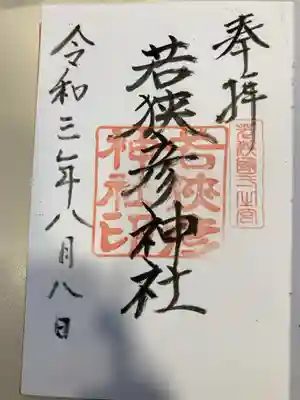 奉拝
若狭國一之宮
若狭彦神社
若狭彦
神社印
令和三年八月八日